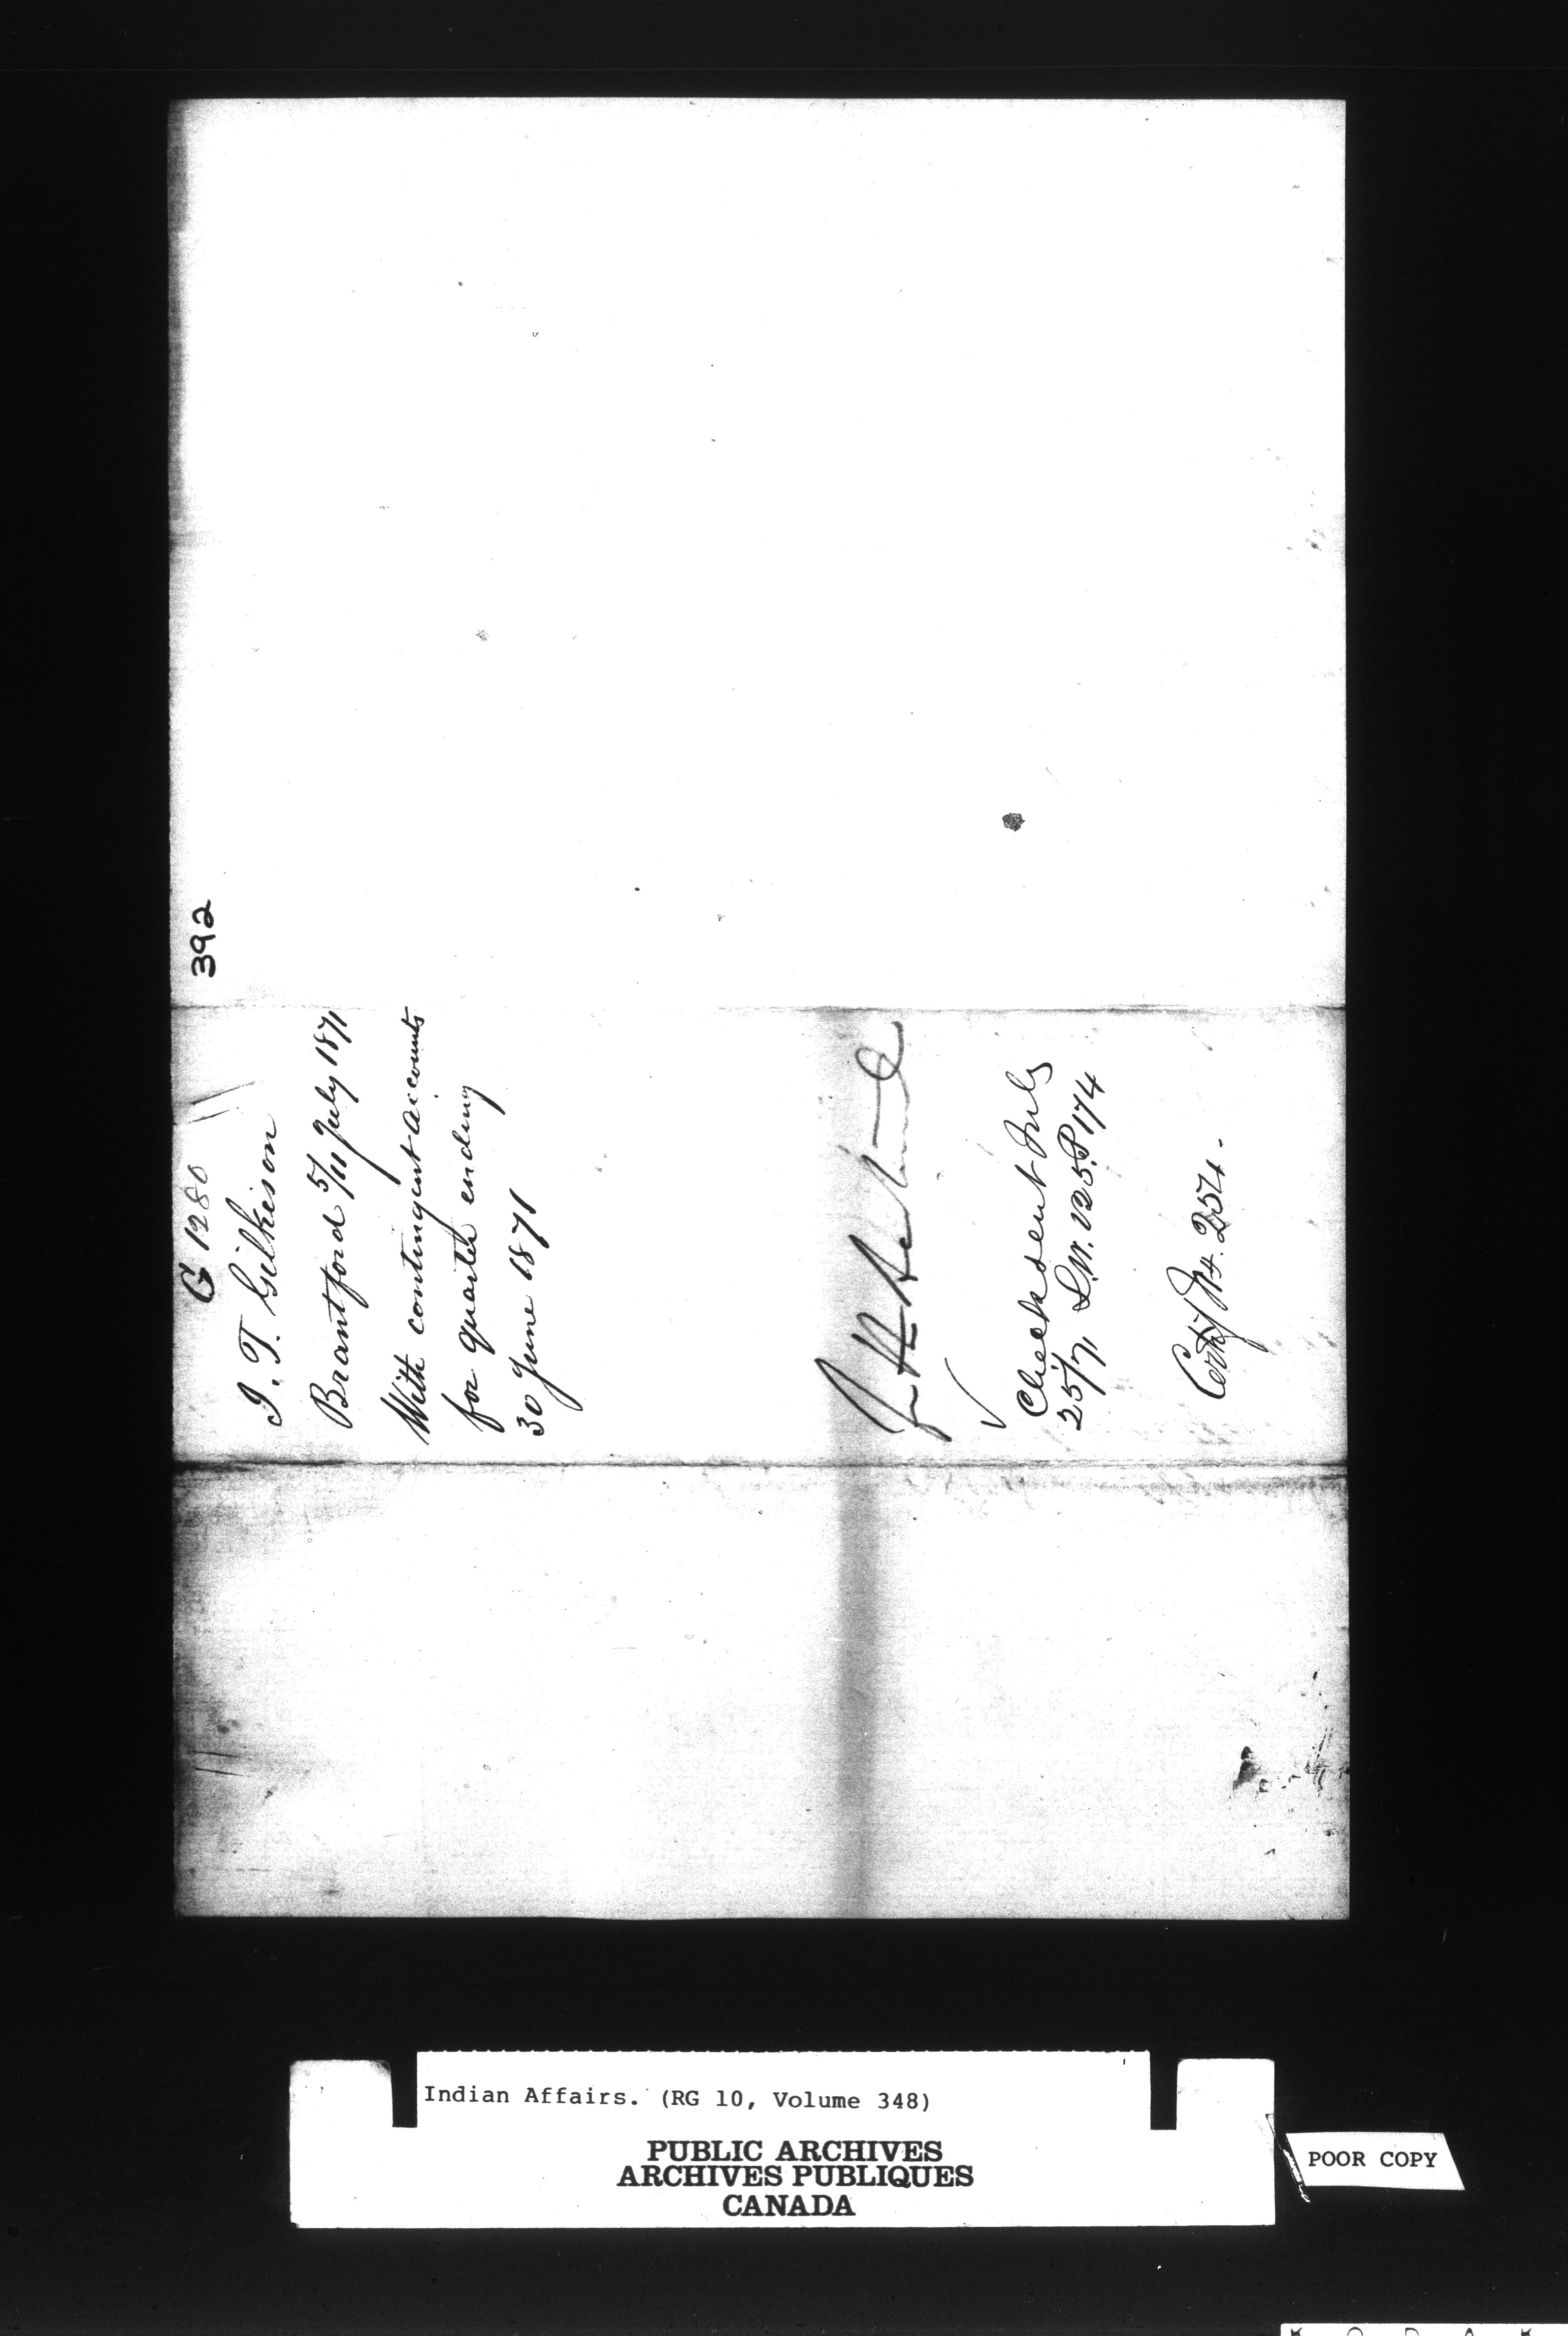 392
G 1280
J. T. Gilkison
Brantford 5/11 July 1871
With contingent accounts
for quarter ending
30 June 1871
Check sent July
25/71 L.W. 125.P 174
Certif No. 257.
Indian Affairs. (RG 10, Volume 348)
PUBLIC ARCHIVES
ARCHIVES PUBLIQUES
CANADA
POOR COPY